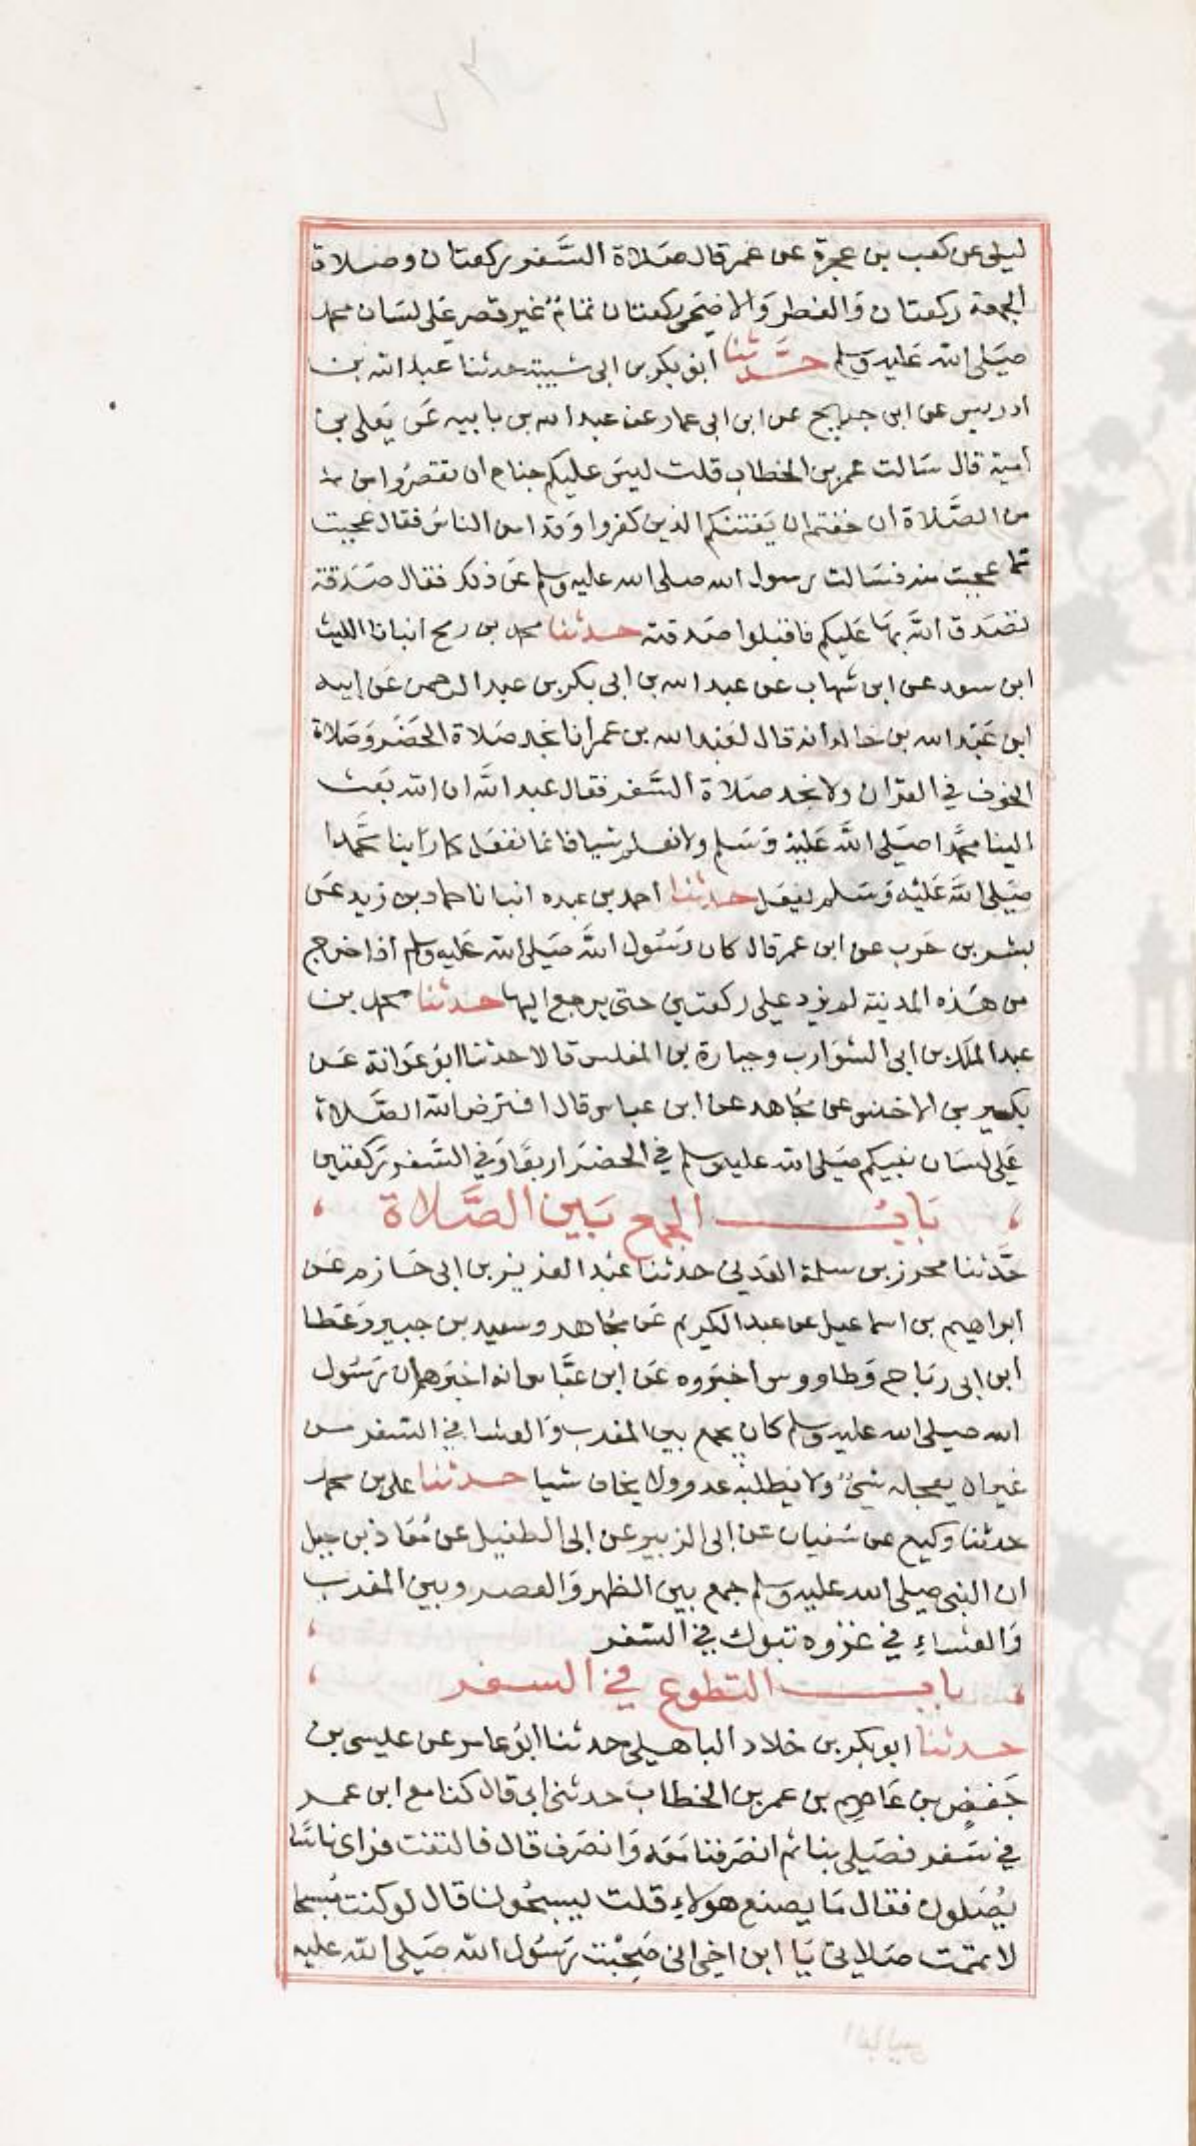 ليلى عن كعب بن عجرة عن عمر قال صلاة السفر ركعتان وصلاة
الجمعة ركعتان والفطر والاضحى ركعتان تمام غير قصر على لسان محمد
صلى الله عليه وسلم حدثنا ابو بكر بن ابى شيبة حدثنا عبد الله بن
ادريس عن ابن جريج عن ابن ابى عمار عن عبد الله بن بابيه عن يعلى بن
امية قال سالت عمر بن الخطاب قلت ليس عليكم جناح ان تقصروا من
من الصلاة ان خفتم ان يفتنكم الذين كفروا وقد امن الناس فقال عجبت
مما عجبت منه فسالت رسول الله صلى الله عليه وسلم عن ذلك فقال صدقة
تصدق الله بها عليكم فاقبلوا صدقته حدثنا محمد بن رمح انبانا الليث
ابن سعد عن ابن شهاب عن عبد الله بن ابى بكر بن عبد الرحمن عن ابيه
ابن عبد الله بن خالد انه قال لعبد الله بن عمر انا نجد صلاة الحضر وصلاة
الخوف في القران ولا نجد صلاة السفر فقال عبد الله ان الله بعث
الينا محمدا صلى الله عليه وسلم ولا نعلم شيا فانما نفعل كما راينا محمدا
صلى الله عليه وسلم يفعل حدثنا احمد بن عبده انبانا حماد بن زيد عن
بشر بن حرب عن ابن عمر قال كان رسول الله صلى الله عليه وسلم اذا خرج
من هذه المدينة لم يزد على ركعتين حتى يرجع اليها حدثنا محمد بن
عبد الملك بن ابى الشوارب وجبارة بن المغلس قالا حدثنا ابو عوانة عن
بكير بن الاخنس عن مجاهد عن ابن عباس قال افترض الله الصلاة
على لسان نبيكم صلى الله عليه وسلم في الحضر اربعا وفي السفر ركعتين
باب الجمع بين الصلاة
حدثنا محرز بن سلمة العدني حدثنا عبد العزيز بن ابى حازم عن
ابراهيم بن اسماعيل عن عبد الكريم عن مجاهد وسعيد بن جبير وعطا
ابن ابى رباح وطاووس اخبروه عن ابن عباس انه اخبرهم ان رسول
الله صلى الله عليه وسلم كان يجمع بين المغرب والعشا في السفر من
غير ان يعجله شئ ولا يطلبه عدو ولا يخاف شيا حدثنا على بن محمد
حدثنا وكيع عن سفيان عن ابى الزبير عن ابى الطفيل عن معاذ بن جبل
ان النبي صلى الله عليه وسلم جمع بين الظهر والعصر وبين المغرب
والعشاء في غزوه تبوك في السفر
باب التطوع في السفر
حدثنا ابو بكر بن خلاد الباهلي حدثنا ابو عامر عن عليسى بن
جفض بن عاصم بن عمر بن الخطاب حدثنى ابى قال كنا مع ابن عمر
في سفر فصلى بنا ثم انصرفنا معه وانصرف قال فالتفت فراى ناسا
يصلون فقال ما يصنع هولاء قلت يسبحون قال لو كنت مسبحا
لاتممت صلاتى يا ابن اخى انى صحبت رسول الله صلى الله عليه